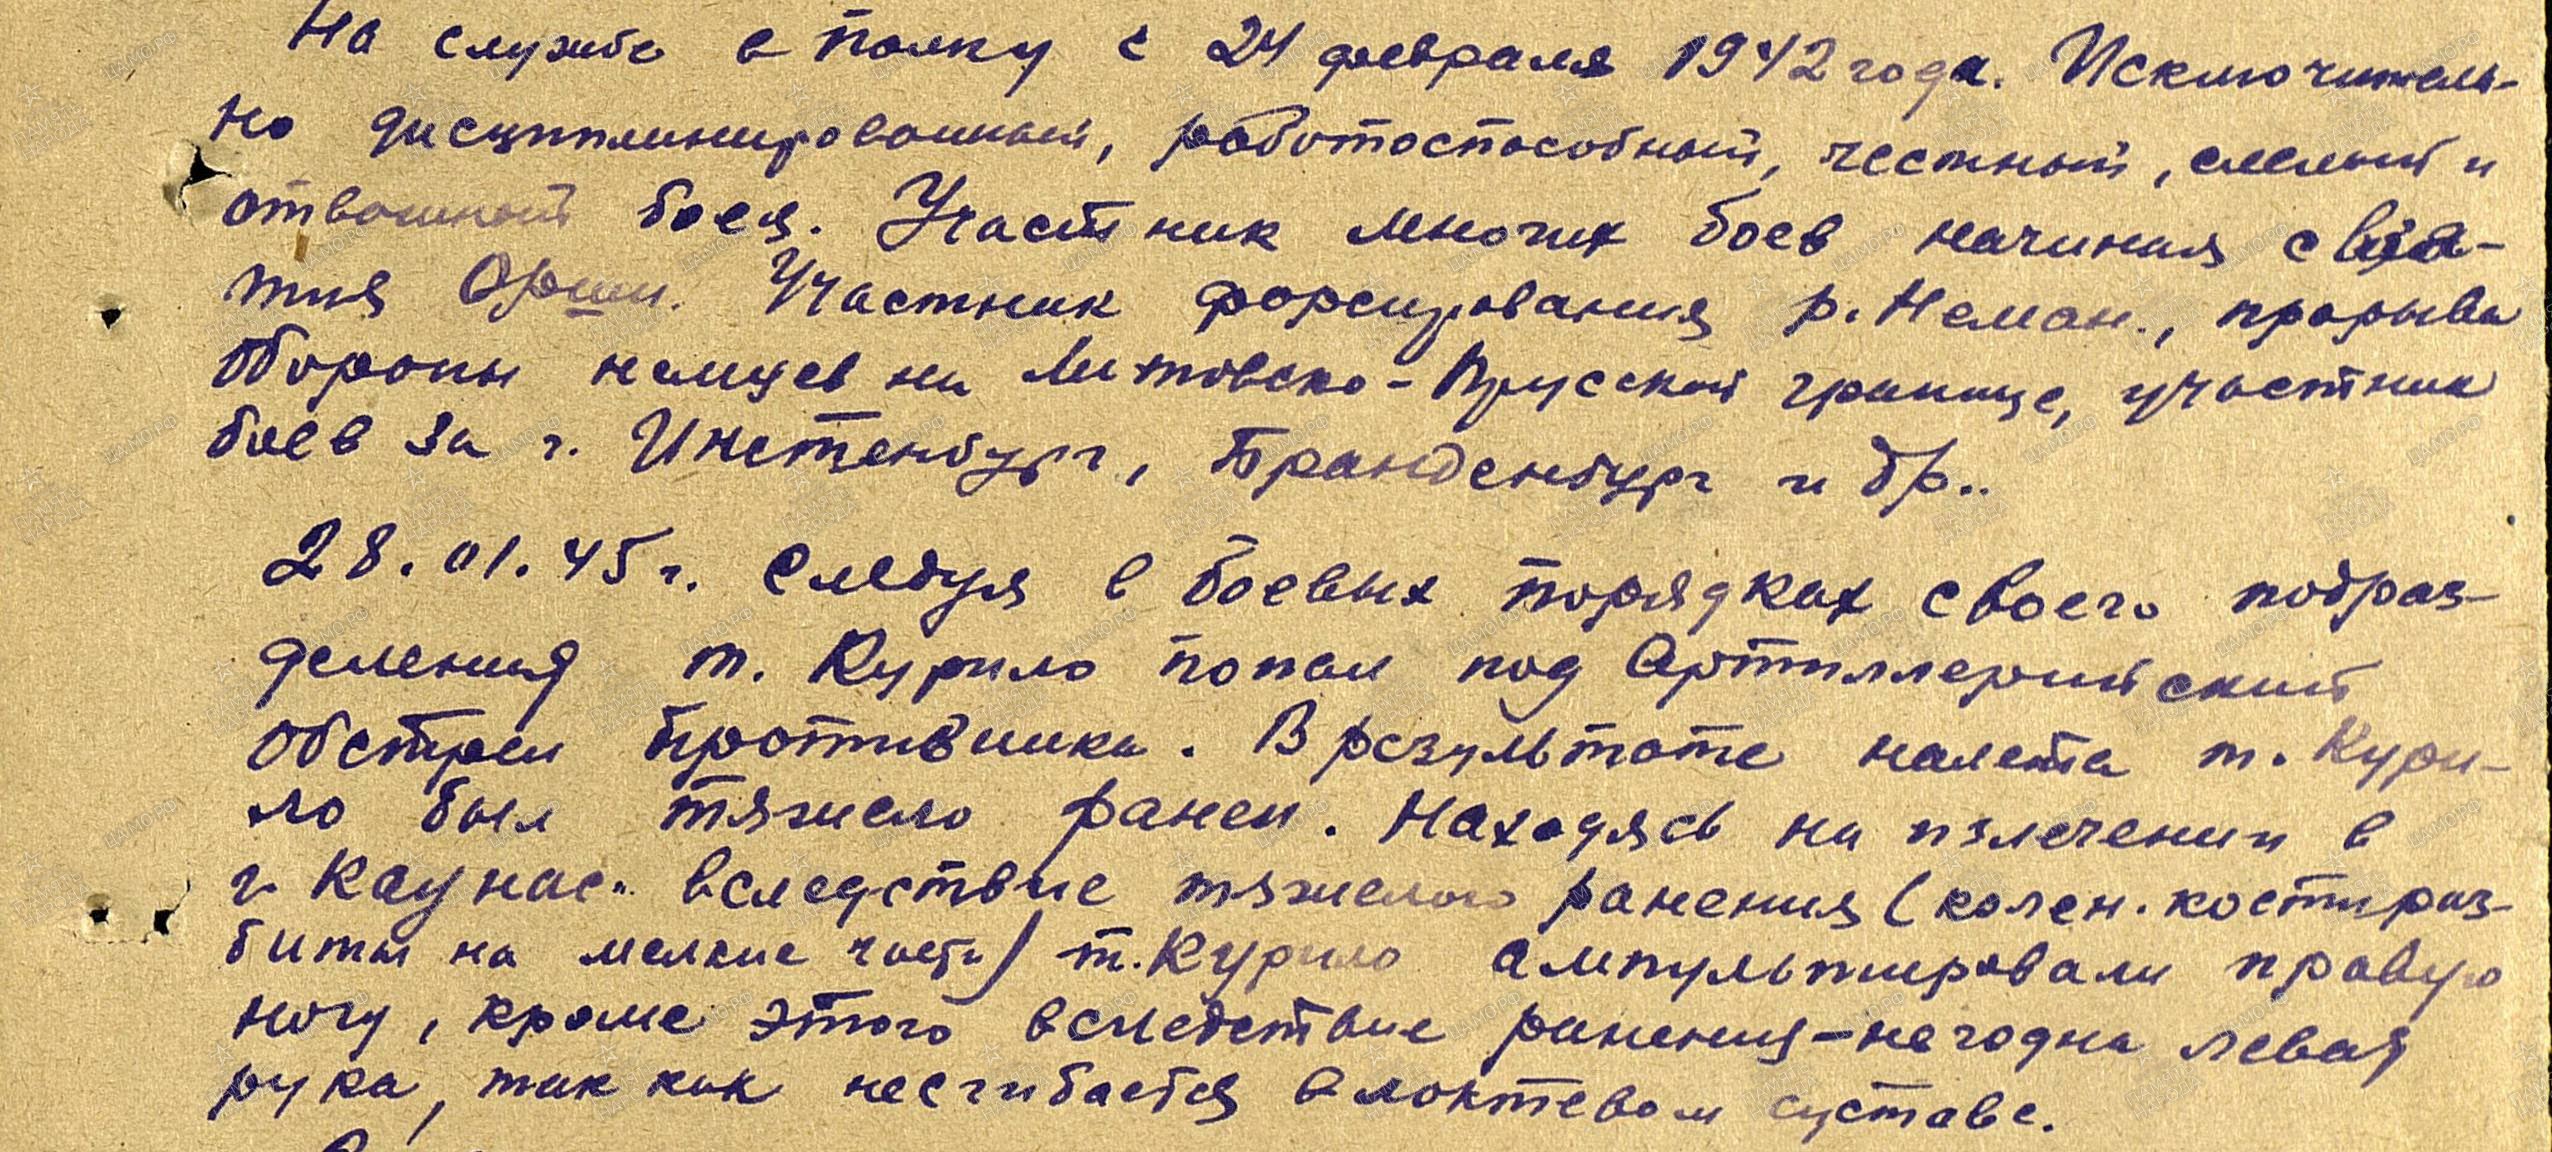 На службе в полку с 24 февраля 1942 года. Исключитель-
но дисциплинированный, работоспособный, честный, смелый и
отважный боец. Участник многих боев начиная с взя-
тия Орши. Участник форсирования р. Неман, прорыва
обороны немцев на Литовско-Прусской границе, участник
боев за г. Инстенбург, Бранденбург и др..
28.01.45 г. Следуя в боевых порядках своего подраз-
деления т. Курило попал под Артиллерийский
обстрел противника. В результате налета т. Кури-
ло был тяжело ранен. Находясь на излечении в
г. Каунас. вследствие тяжелого ранения (колен. кости раз-
биты на мелкие части) т. Курило ампультировали правую
ногу, кроме этого вследствие ранения - негодна левая
рука, так как несгибается в локтевом суставе.